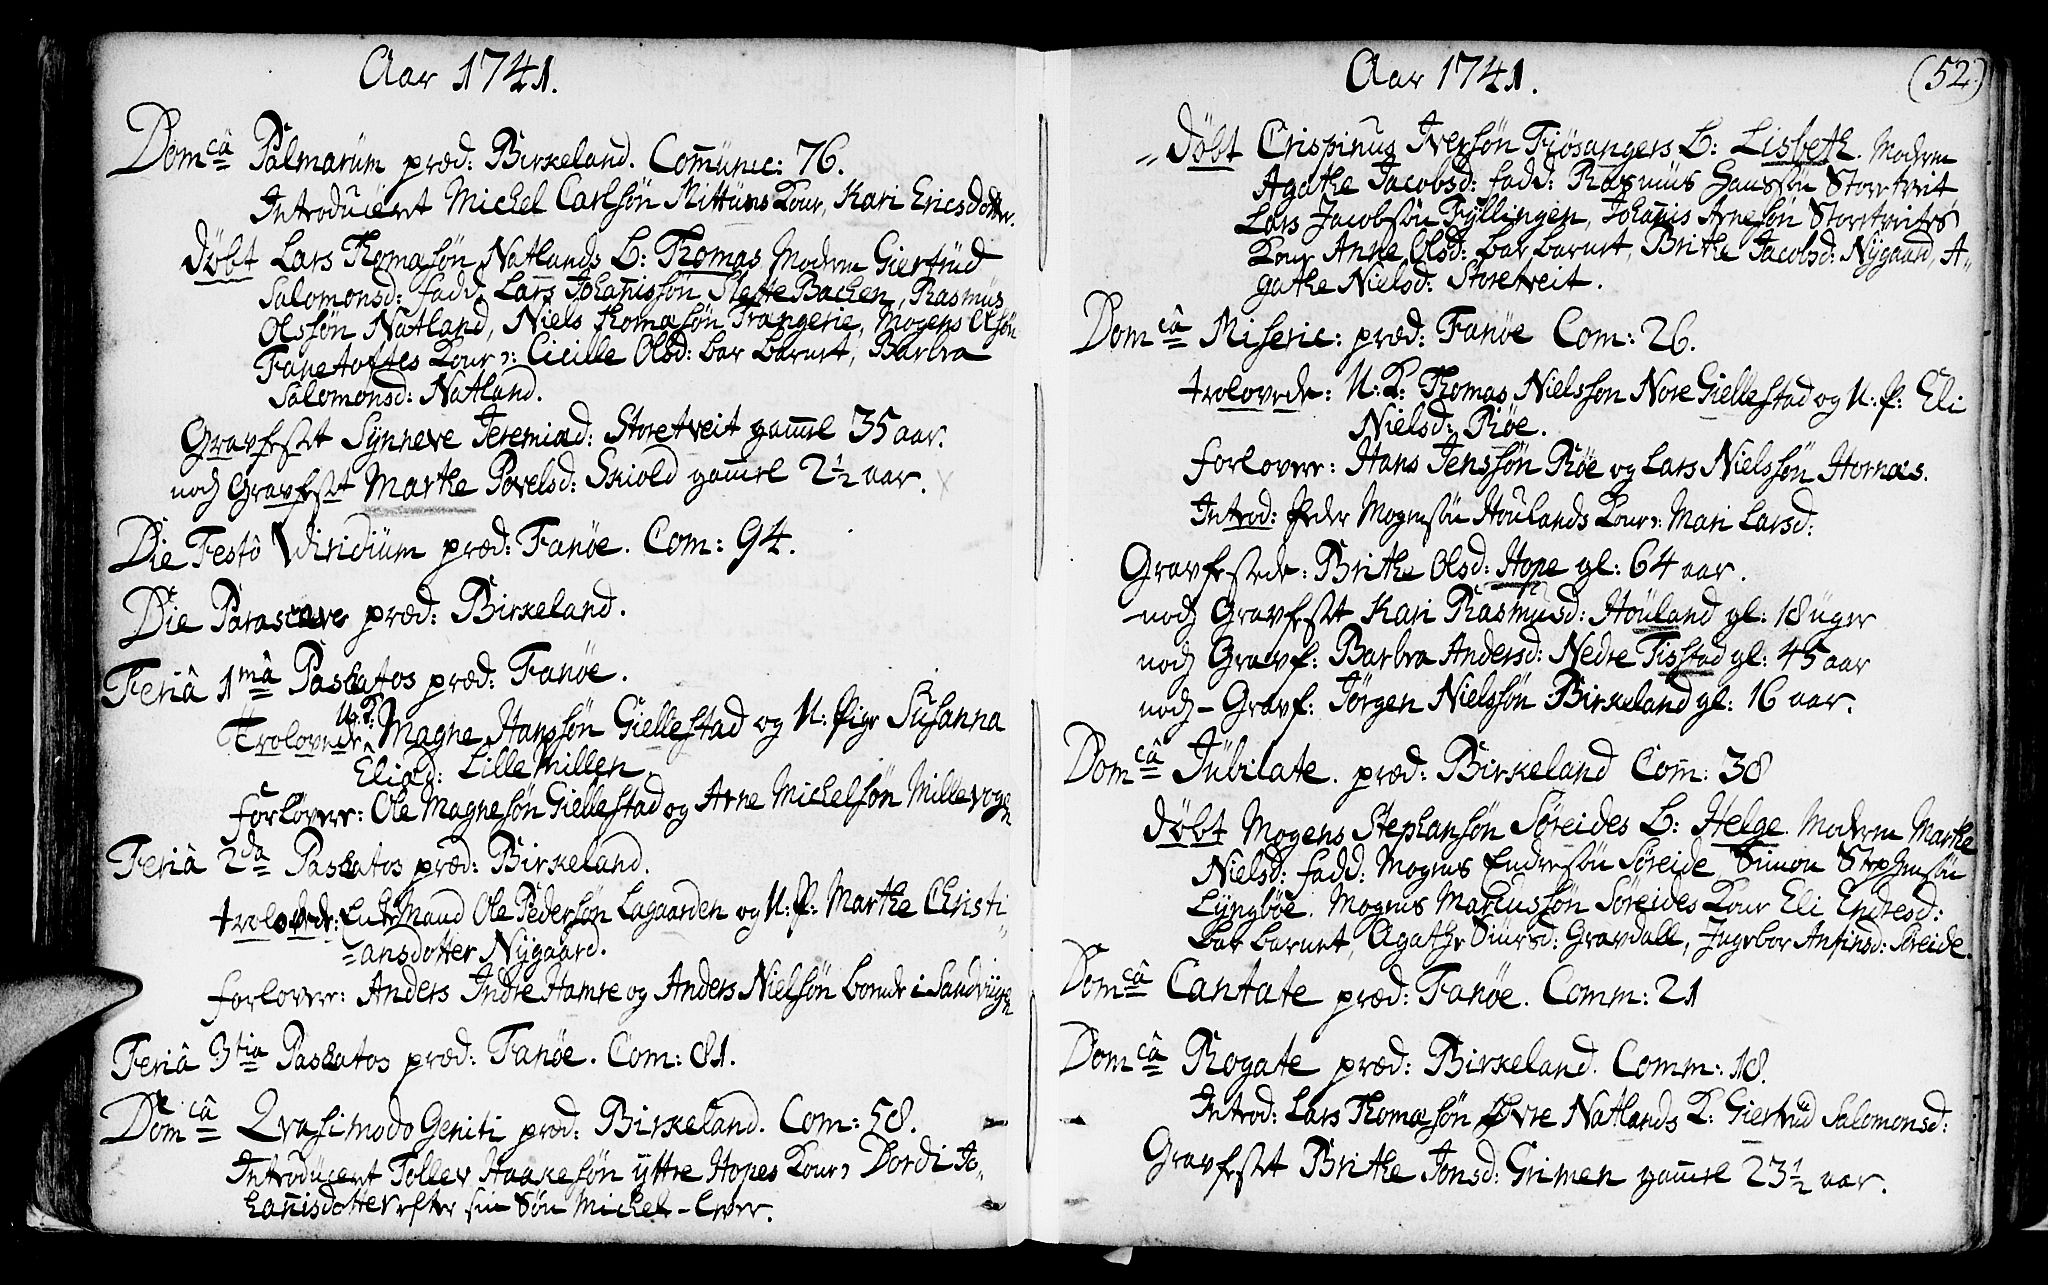 Aar 1741.
Dom câ Palmarüm præd: Birkeland. Comünic: 76.
Introdüceret Michel Carlsøn Kittüns Kone, Kari Ericsdotter.
Døbt Lars Thomasøn Natlands B: Thomas Modren Giertrüd
Salomonsd: fadd: Lars Johanissøn Slette Backen, Rasmüs
Olssøn Natland, Niels Thomasøn Trangerie, Mogens Olsøn
Fanetoftes Kone: Cicille Olsd: bar barnet, Barbra
Salomonsd: Natland.
Gravfestet Synneve Jeremiæd: Storetveit gamel 35 aar.
noch Gravfestet Marthe Povelsd: Skiold gamel 2½ aar.
Die Festô Viridiüm præd: Fanøe. Com: 94.
Die Parasceve præd: Birkeland.
Feriâ 1mâ Paschatos præd: Fanøe.
Trolovede U: K: Magne Hanssøn Giellestad og U: Pige Susanna
Eliæd: Lille Millen
forlovere: Ole Magnesøn Giellestad og Arne Michelsøn Millevogen
Feriâ 2da Paschatos præd: Birkeland.
trolovede: Enke Mand Ole Pedersøn Lagaarden og U: P: Marthe Christi-
-ansdotter Nygaard.
forlovere: Anders Indre Hamre og Anders Nielsøn boende i Sandviigen
Feriâ 3tia Paschatos præd: Fanøe. Com: 81.
Dom câ Qvasimodo Geniti præd: Birkeland. Com: 58.
Introdüceret Tollev Haakesøn yttre Hopes Kone, Dordi Jo-
hanisdotter efter sin Søn Michel
Aar 1741.
(52)
Døbt Crispinus Iversøn Fiøsangers B: Lisbeth. Modren
Agathe Jacobsd: fadd: Rasmüs Hanssøn Storetveit
Lars Jacobsøn Fyllingen, Johanis Arnesøn Storetveites
Kone Anne Olsd: bar barnet, Brithe Jacobsd: Nygaard, A-
gathe Nielsd: Storetveit.
Dom câ Miseric: præd: Fanøe Com: 26.
trolovede: U: K: Thomas Nielssøn Nore Giellestad og U: P: Eli
Nielsd: Røe.
forlovere: Hans Jenssøn Røe og Lars Nielssøn Hornæs.
Introd: Peder Mogensøn Houlands Kone: Mari Larsd:
Gravfestede: Brithe Olsd: Hope gl: 64 aar.
noch Gravfestet Kari Rasmusd: Houland gl: 18 üger
noch Gravf: Barbra Andersd: Nedre Tisstad gl: 45 aar
noch - Gravf: Jørgen Nielssøn Birkeland gl: 16 aar.
Dom câ Jübilate. præd: Birkeland Com: 38
Døbt Mogens Stephansøn Søreides B: Helge. Modren Marthe
Nielsd: fadd: Mogens Endresøn Søreide, Simon Stephensøn
Lyngbøe. Mogens Markussøn Søreides Kone Eli Endresd:
bar barnet, Agathe Siursd: Gravdall, Ingebor Anfinsd: Søreide.
Dom câ Cantate præd: Fanøe. Comm: 21
Dom câ Rogate præd: Birkeland. Comm: 18.
Introd: Lars Thomæsøn Øvre Natlands K: Giertrüd Salomonsd:
Gravfestet Brithe Jonsd: Grimen gamel 23½ aar.